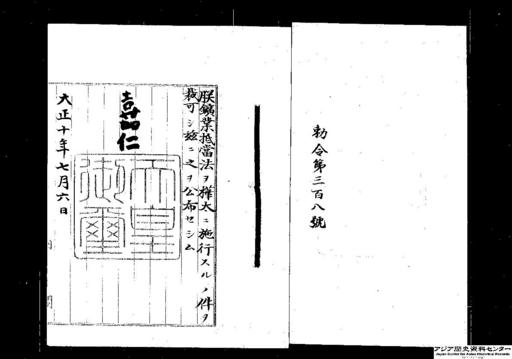 勅令第三百八號
朕鑛業抵當法ヲ樺太ニ施行スルノ件ヲ
裁可シ玆ニ之ヲ公布セシム
嘉仁
天皇
御璽
大正十年七月六日
アジア歴史資料センター
Japan Center for Asian Historical Records